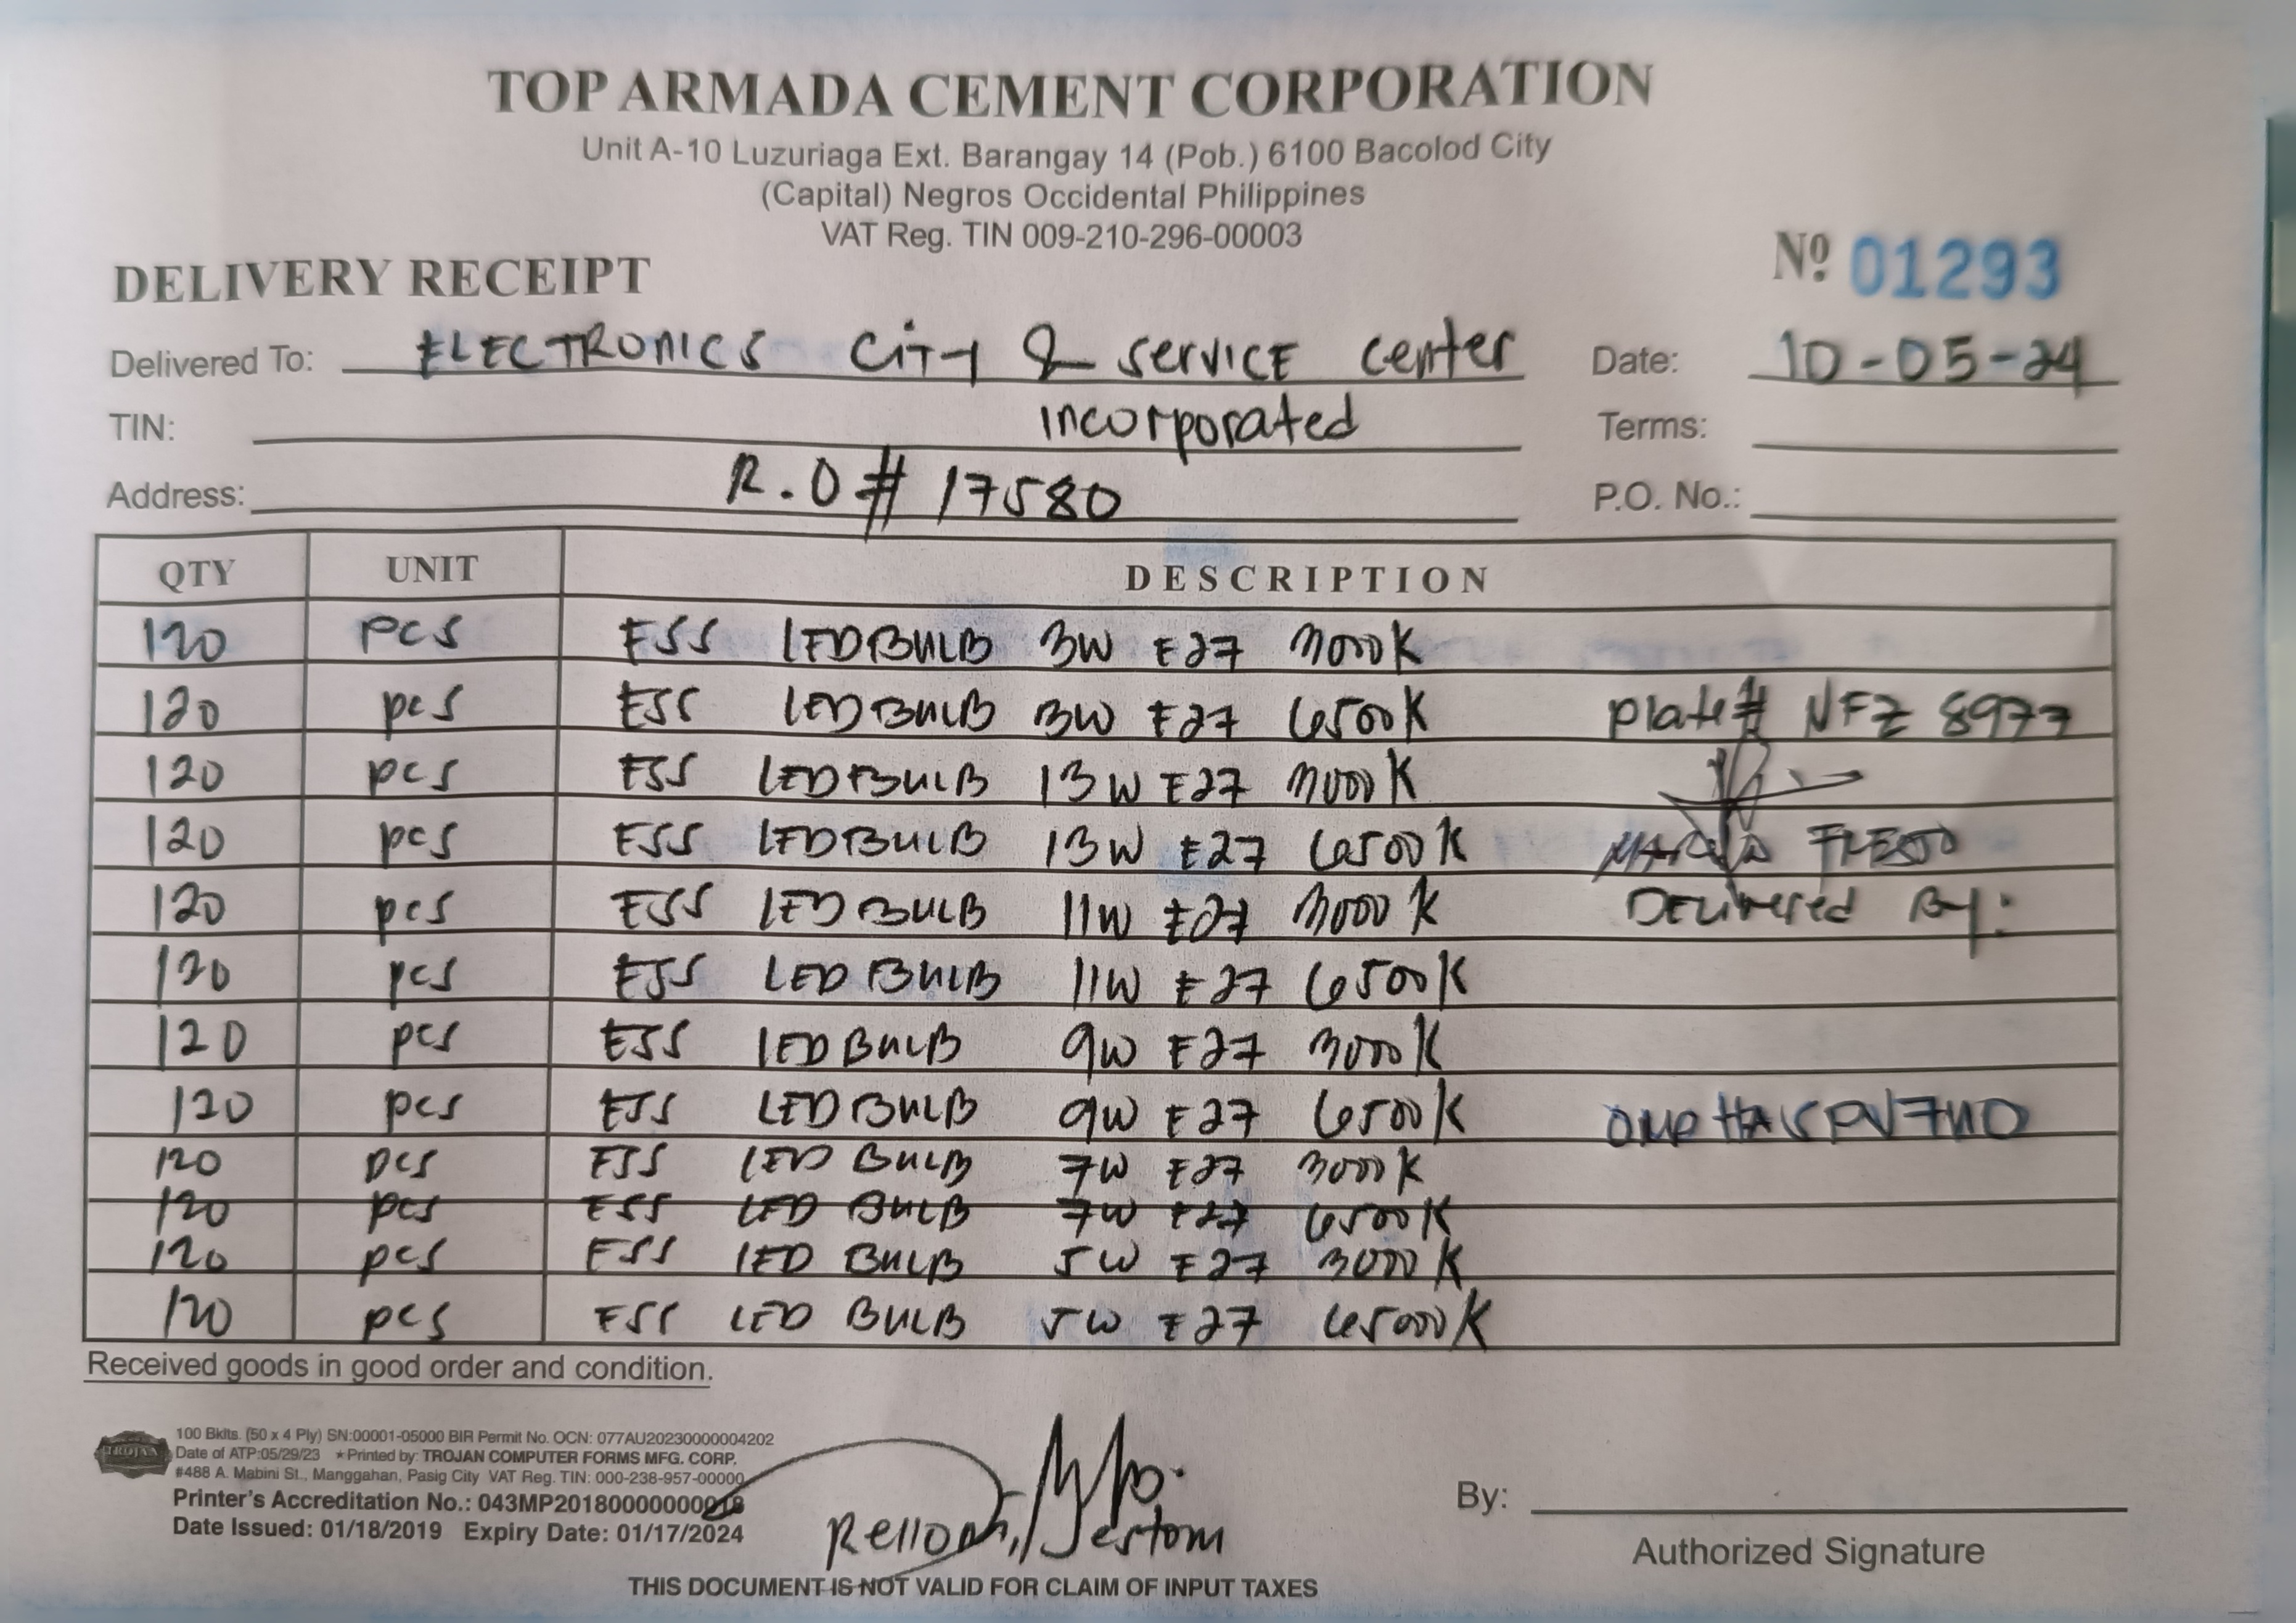 TOP ARMADA CEMENT CORPORATION
Unit A-10 Luzuriaga Ext. Barangay 14 (Pob.) 6100 Bacolod City
(Capital) Negros Occidental Philippines
VAT Reg. TIN 009-210-296-00003
DELIVERY RECEIPT Nº 01293
Delivered To: ELECTRONICS CITY & SERVICE center Date: 10-05-24
TIN: incorporated Terms:
Address: R.O # 17580 P.O. No.:
QTY UNIT DESCRIPTION
120 PCS ESS LED BULB 3W E27 3000K
120 pcs ESS LED BULB 3W E27 6500K plate# NFZ 8977
120 pcs ESS LED BULB 13W E27 3000K
120 pcs ESS LED BULB 13W E27 6500K
120 pcs ESS LED BULB 11W E27 3000K DELivered By:
120 pcs ESS LED BULB 11W E27 6500K
120 pcs ESS LED BULB 9W E27 3000K
120 pcs ESS LED BULB 9W E27 6500K
120 pcs ESS LED BULB 7W E27 3000K
120 pcs ESS LED BULB 7W E27 6500K
120 pcs ESS LED BULB 5W E27 3000K
120 pcs ESS LED BULB 5W E27 65000K
Received goods in good order and condition.
TROJAN
100 Bklts. (50 x 4 Ply) SN:00001-05000 BIR Permit No. OCN: 077AU20230000004202
Date of ATP:05/29/23 ★Printed by: TROJAN COMPUTER FORMS MFG. CORP.
#488 A. Mabini St., Manggahan, Pasig City VAT Reg. TIN: 000-238-957-00000
Printer's Accreditation No.: 043MP20180000000018
Date Issued: 01/18/2019 Expiry Date: 01/17/2024
Jestoni
By:
Authorized Signature
THIS DOCUMENT IS NOT VALID FOR CLAIM OF INPUT TAXES